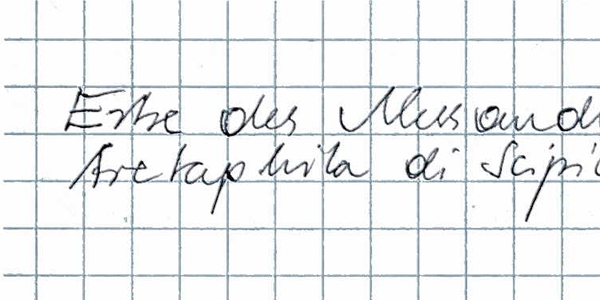 Erbe des Alessand
Aretaphila di Scipi